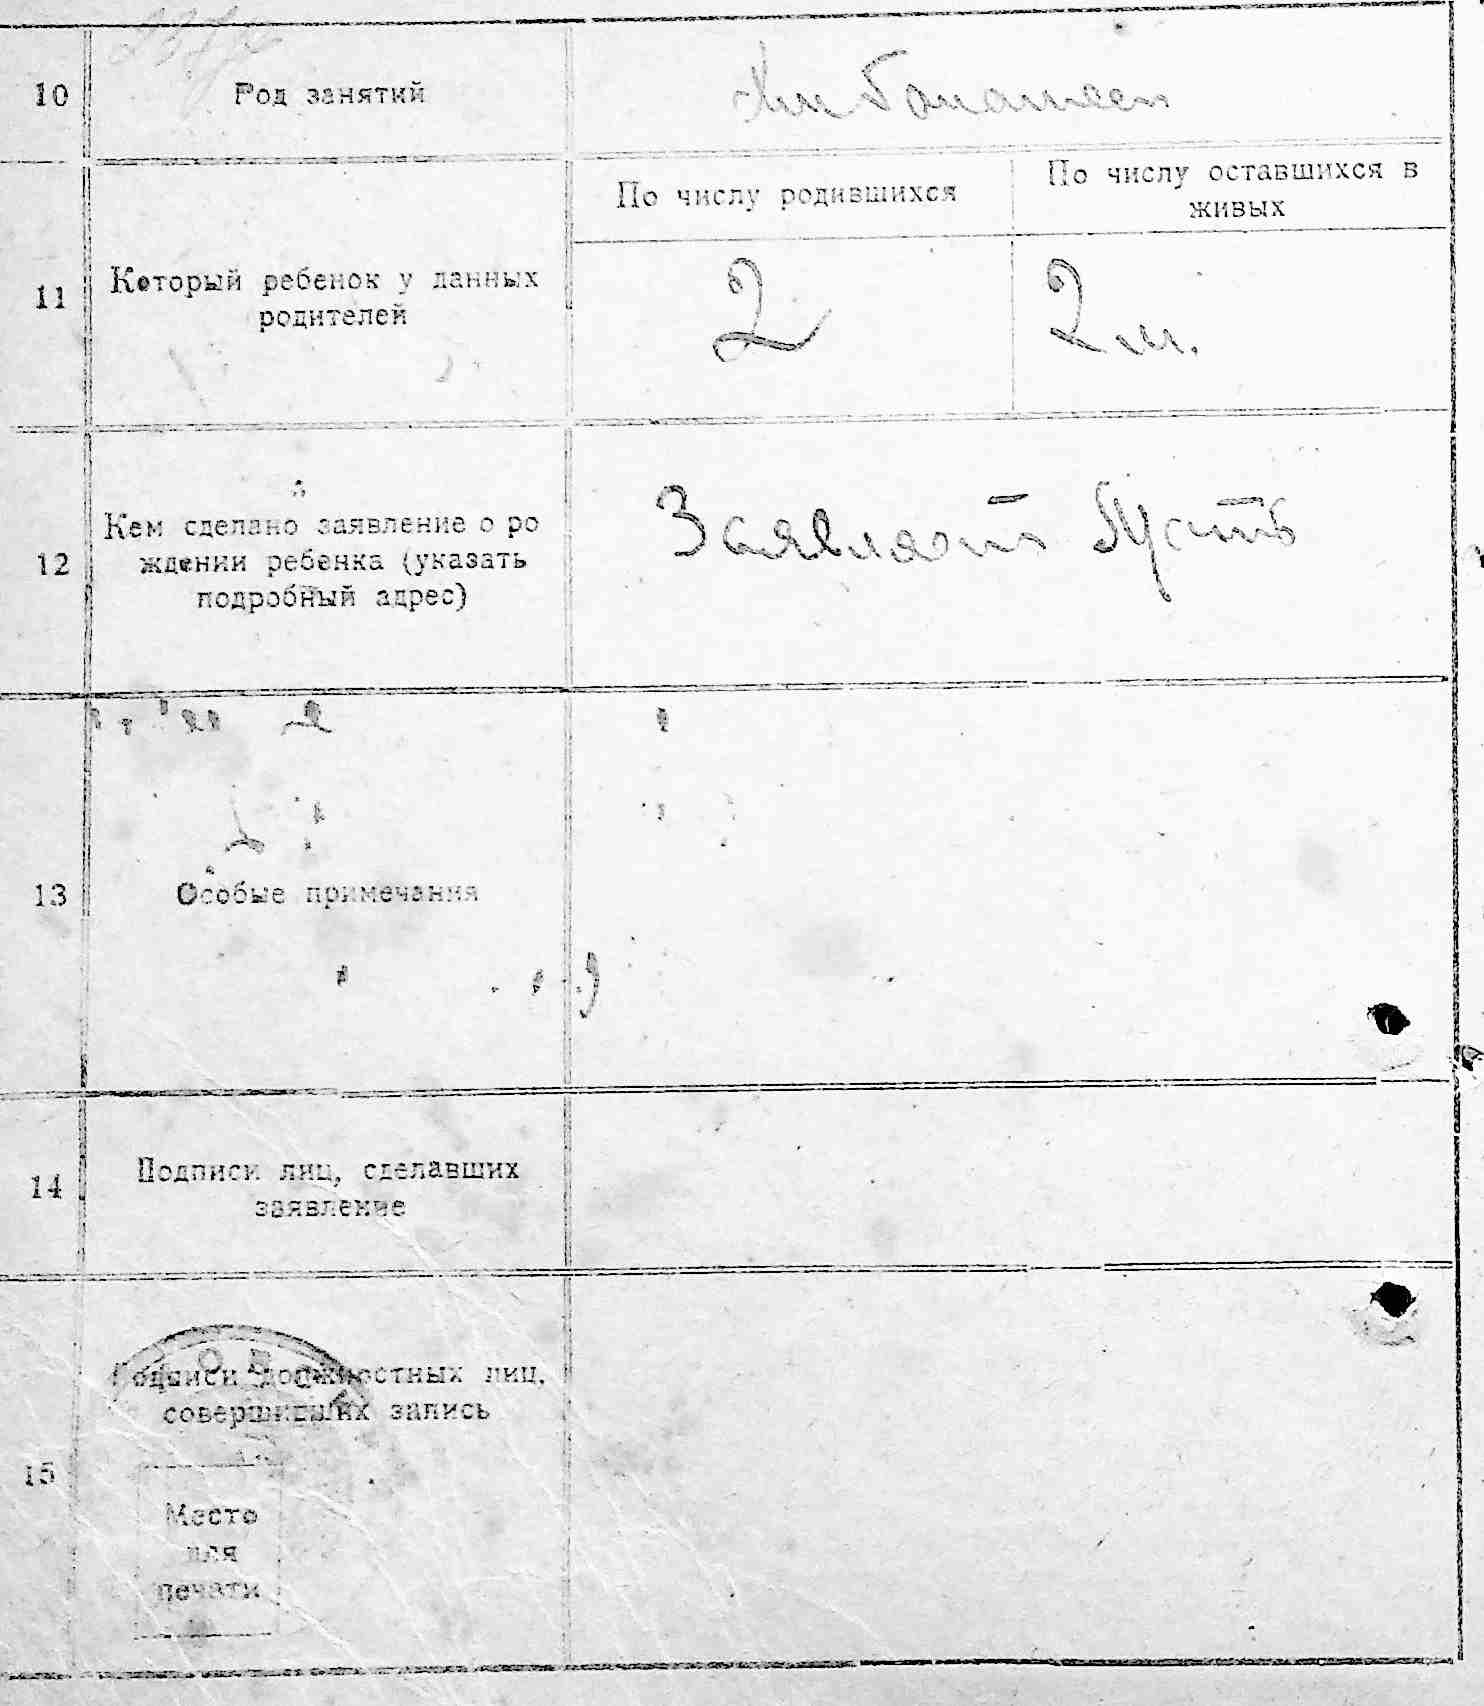 10
Род занятий
По числу родившихся
По числу оставшихся в
живых
11
Который ребенок у данных
родителей
2
2 м.
12
Кем сделано заявление о ро
ждении ребенка (указать
подробный адрес)
Заявляет
13
Особые примечания
14
Подписи лиц, сделавших
заявление
15
Подписи должностных лиц,
совершивших запись
Место
для
печати